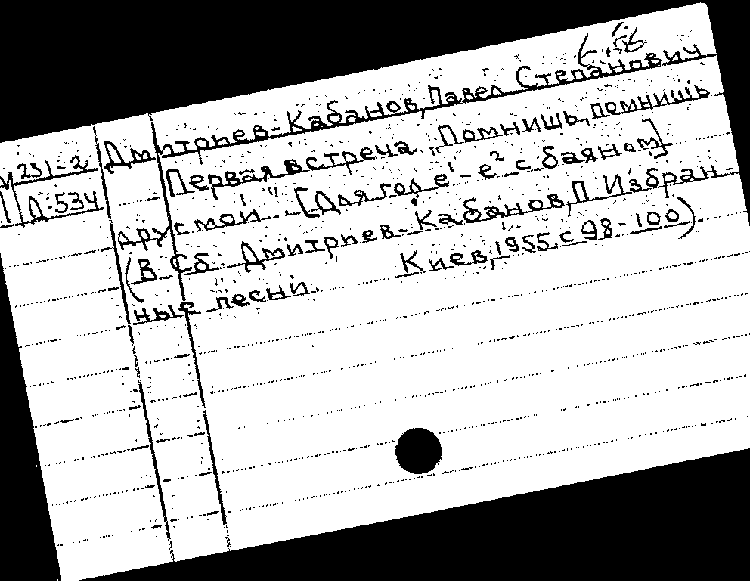 М251-2 Дмитриев-Кабанов, Павел Степанович
Д-534 Первая встреча „Помнишь, помнишь
друг мой“ [Для гол e¹-e² с баяном]
(В сб: Дмитриев-Кабанов, П Избран
ные песни. Киев, 1955. с 98-100)